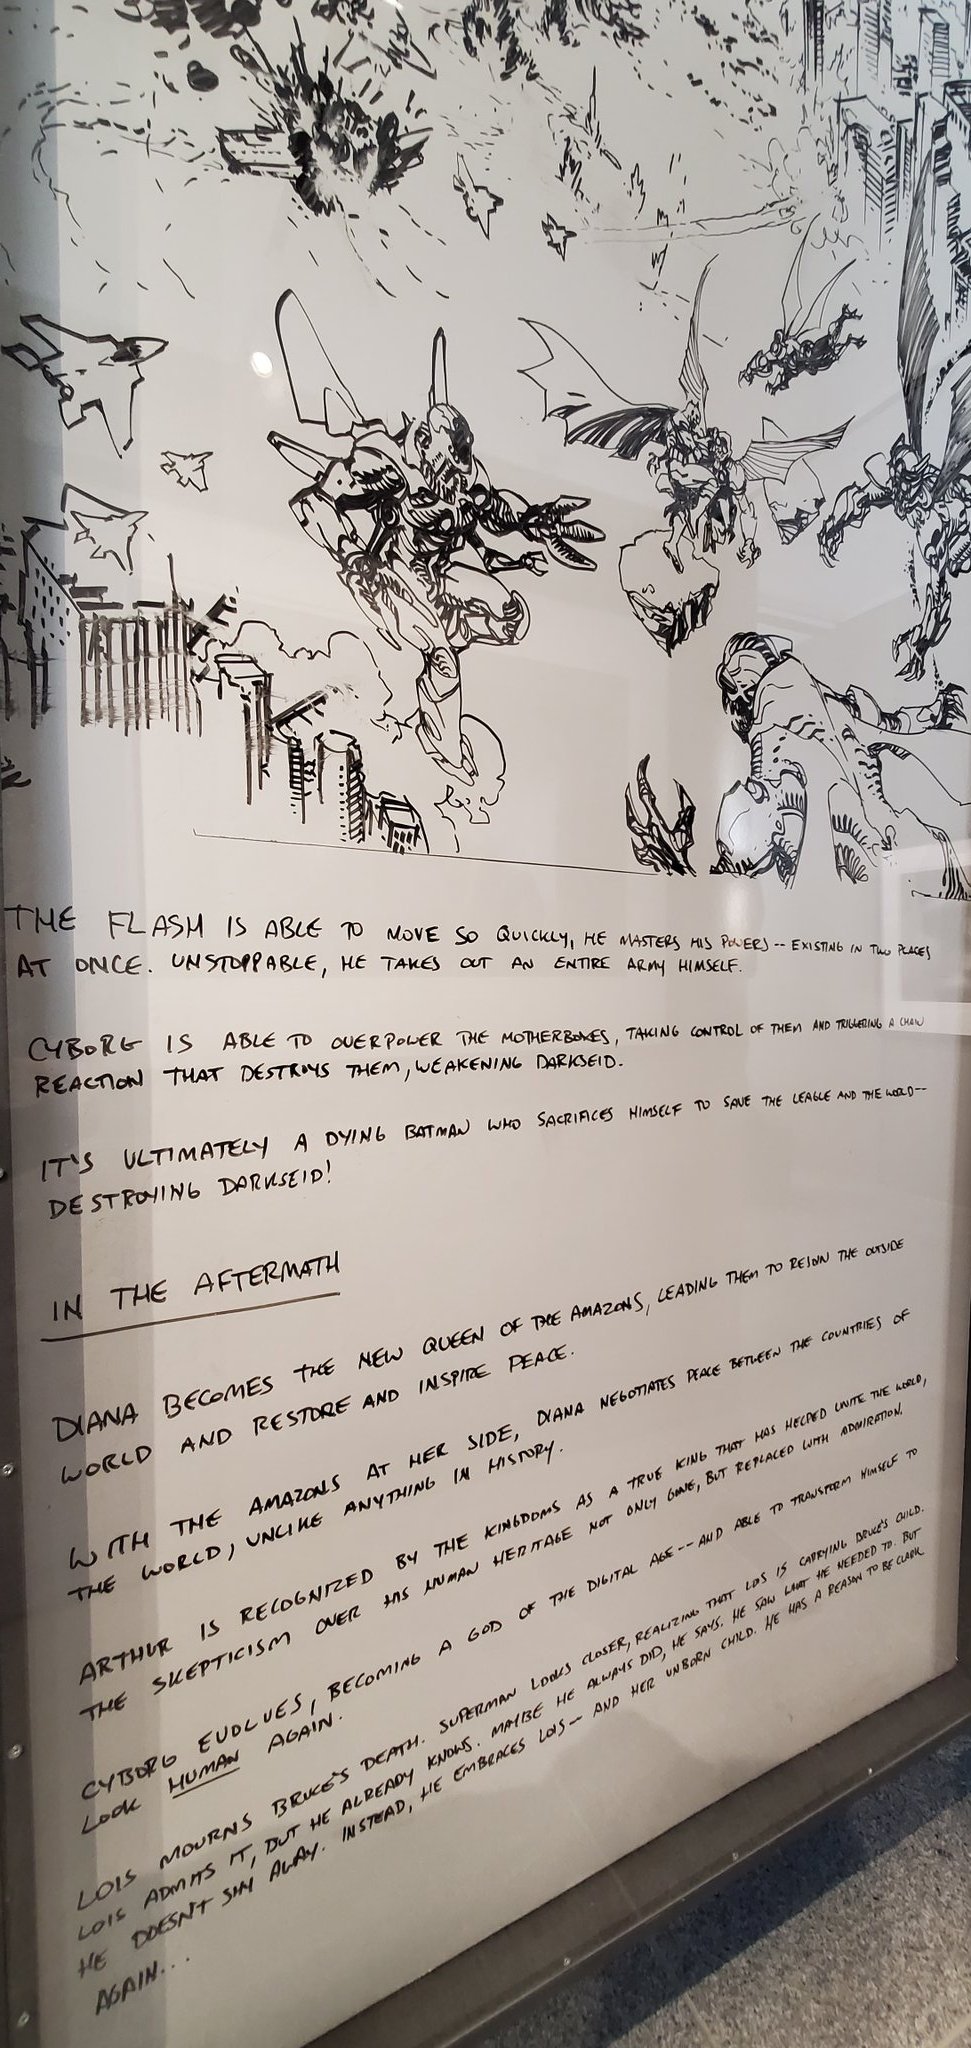 THE FLASH IS ABLE TO MOVE SO QUICKLY, HE MASTERS HIS POWERS -- EXISTING IN TWO PLACES
AT ONCE. UNSTOPPABLE, HE TAKES OUT AN ENTIRE ARMY HIMSELF.
CYBORG IS ABLE TO OVERPOWER THE MOTHERBOXES, TAKING CONTROL OF THEM AND TRIGGERING A CHAIN
REACTION THAT DESTROYS THEM, WEAKENING DARKSEID.
IT'S ULTIMATELY A DYING BATMAN WHO SACRIFICES HIMSELF TO SAVE THE LEAGUE AND THE WORLD --
DESTROYING DARKSEID!
IN THE AFTERMATH
DIANA BECOMES THE NEW QUEEN OF THE AMAZONS, LEADING THEM TO REJOIN THE OUTSIDE
WORLD AND RESTORE AND INSPIRE PEACE.
WITH THE AMAZONS AT HER SIDE, DIANA NEGOTIATES PEACE BETWEEN THE COUNTRIES OF
THE WORLD, UNLIKE ANYTHING IN HISTORY.
ARTHUR IS RECOGNIZED BY THE KINGDOMS AS A TRUE KING THAT HAS HELPED UNITE THE WORLD,
THE SKEPTICISM OVER HIS HUMAN HERITAGE NOT ONLY GONE, BUT REPLACED WITH ADMIRATION.
CYBORG EVOLVES, BECOMING A GOD OF THE DIGITAL AGE -- AND ABLE TO TRANSFORM HIMSELF TO
LOOK HUMAN AGAIN.
LOIS MOURNS BRUCE'S DEATH. SUPERMAN LOOKS CLOSER, REALIZING THAT LOIS IS CARRYING BRUCE'S CHILD.
LOIS ADMITS IT, BUT HE ALREADY KNOWS. MAYBE HE ALWAYS DID, HE SAYS. HE SAW WHAT HE NEEDED TO. BUT
HE DOESN'T SHY AWAY. INSTEAD, HE EMBRACES LOIS -- AND HER UNBORN CHILD. HE HAS A REASON TO BE CLARK
AGAIN...